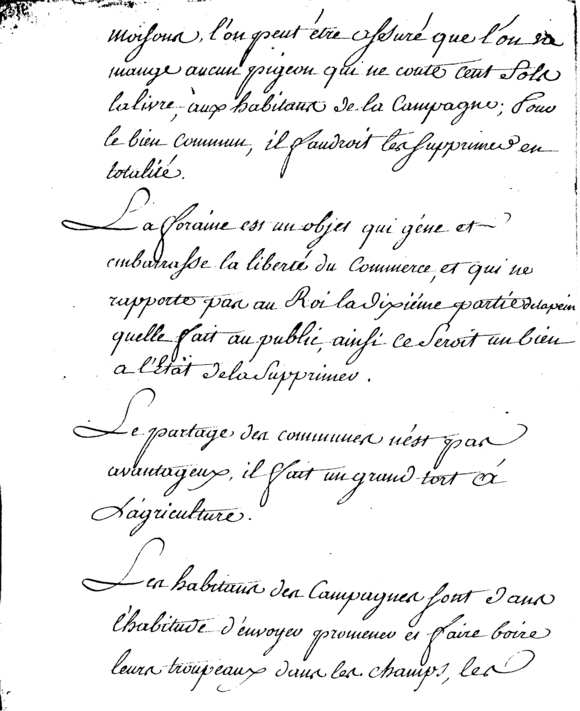 moisons, l'on peut être assuré que l'on ne
mange aucun pigeon qui ne coute cent sols
la livre, aux habitans de la Campagne; Pour
le bien Commun, il faudroit les supprimer en
totalité.
La foraine est un objet qui géne et
embarrasse la liberté du Commerce, et qui ne
rapporte pas au Roi la dixiéme partie de la pein
quelle fait au public, ainsi ce seroit un bien
a l'Etat de la Supprimer.
Le partage des communes n'ést pas
avantageux, il fait un grand tort à
L'agriculture.
Les habitans des Campagnes sont dans
l'habitude d'envoyer promener et faire boire
leurs troupeaux dans les champs, les